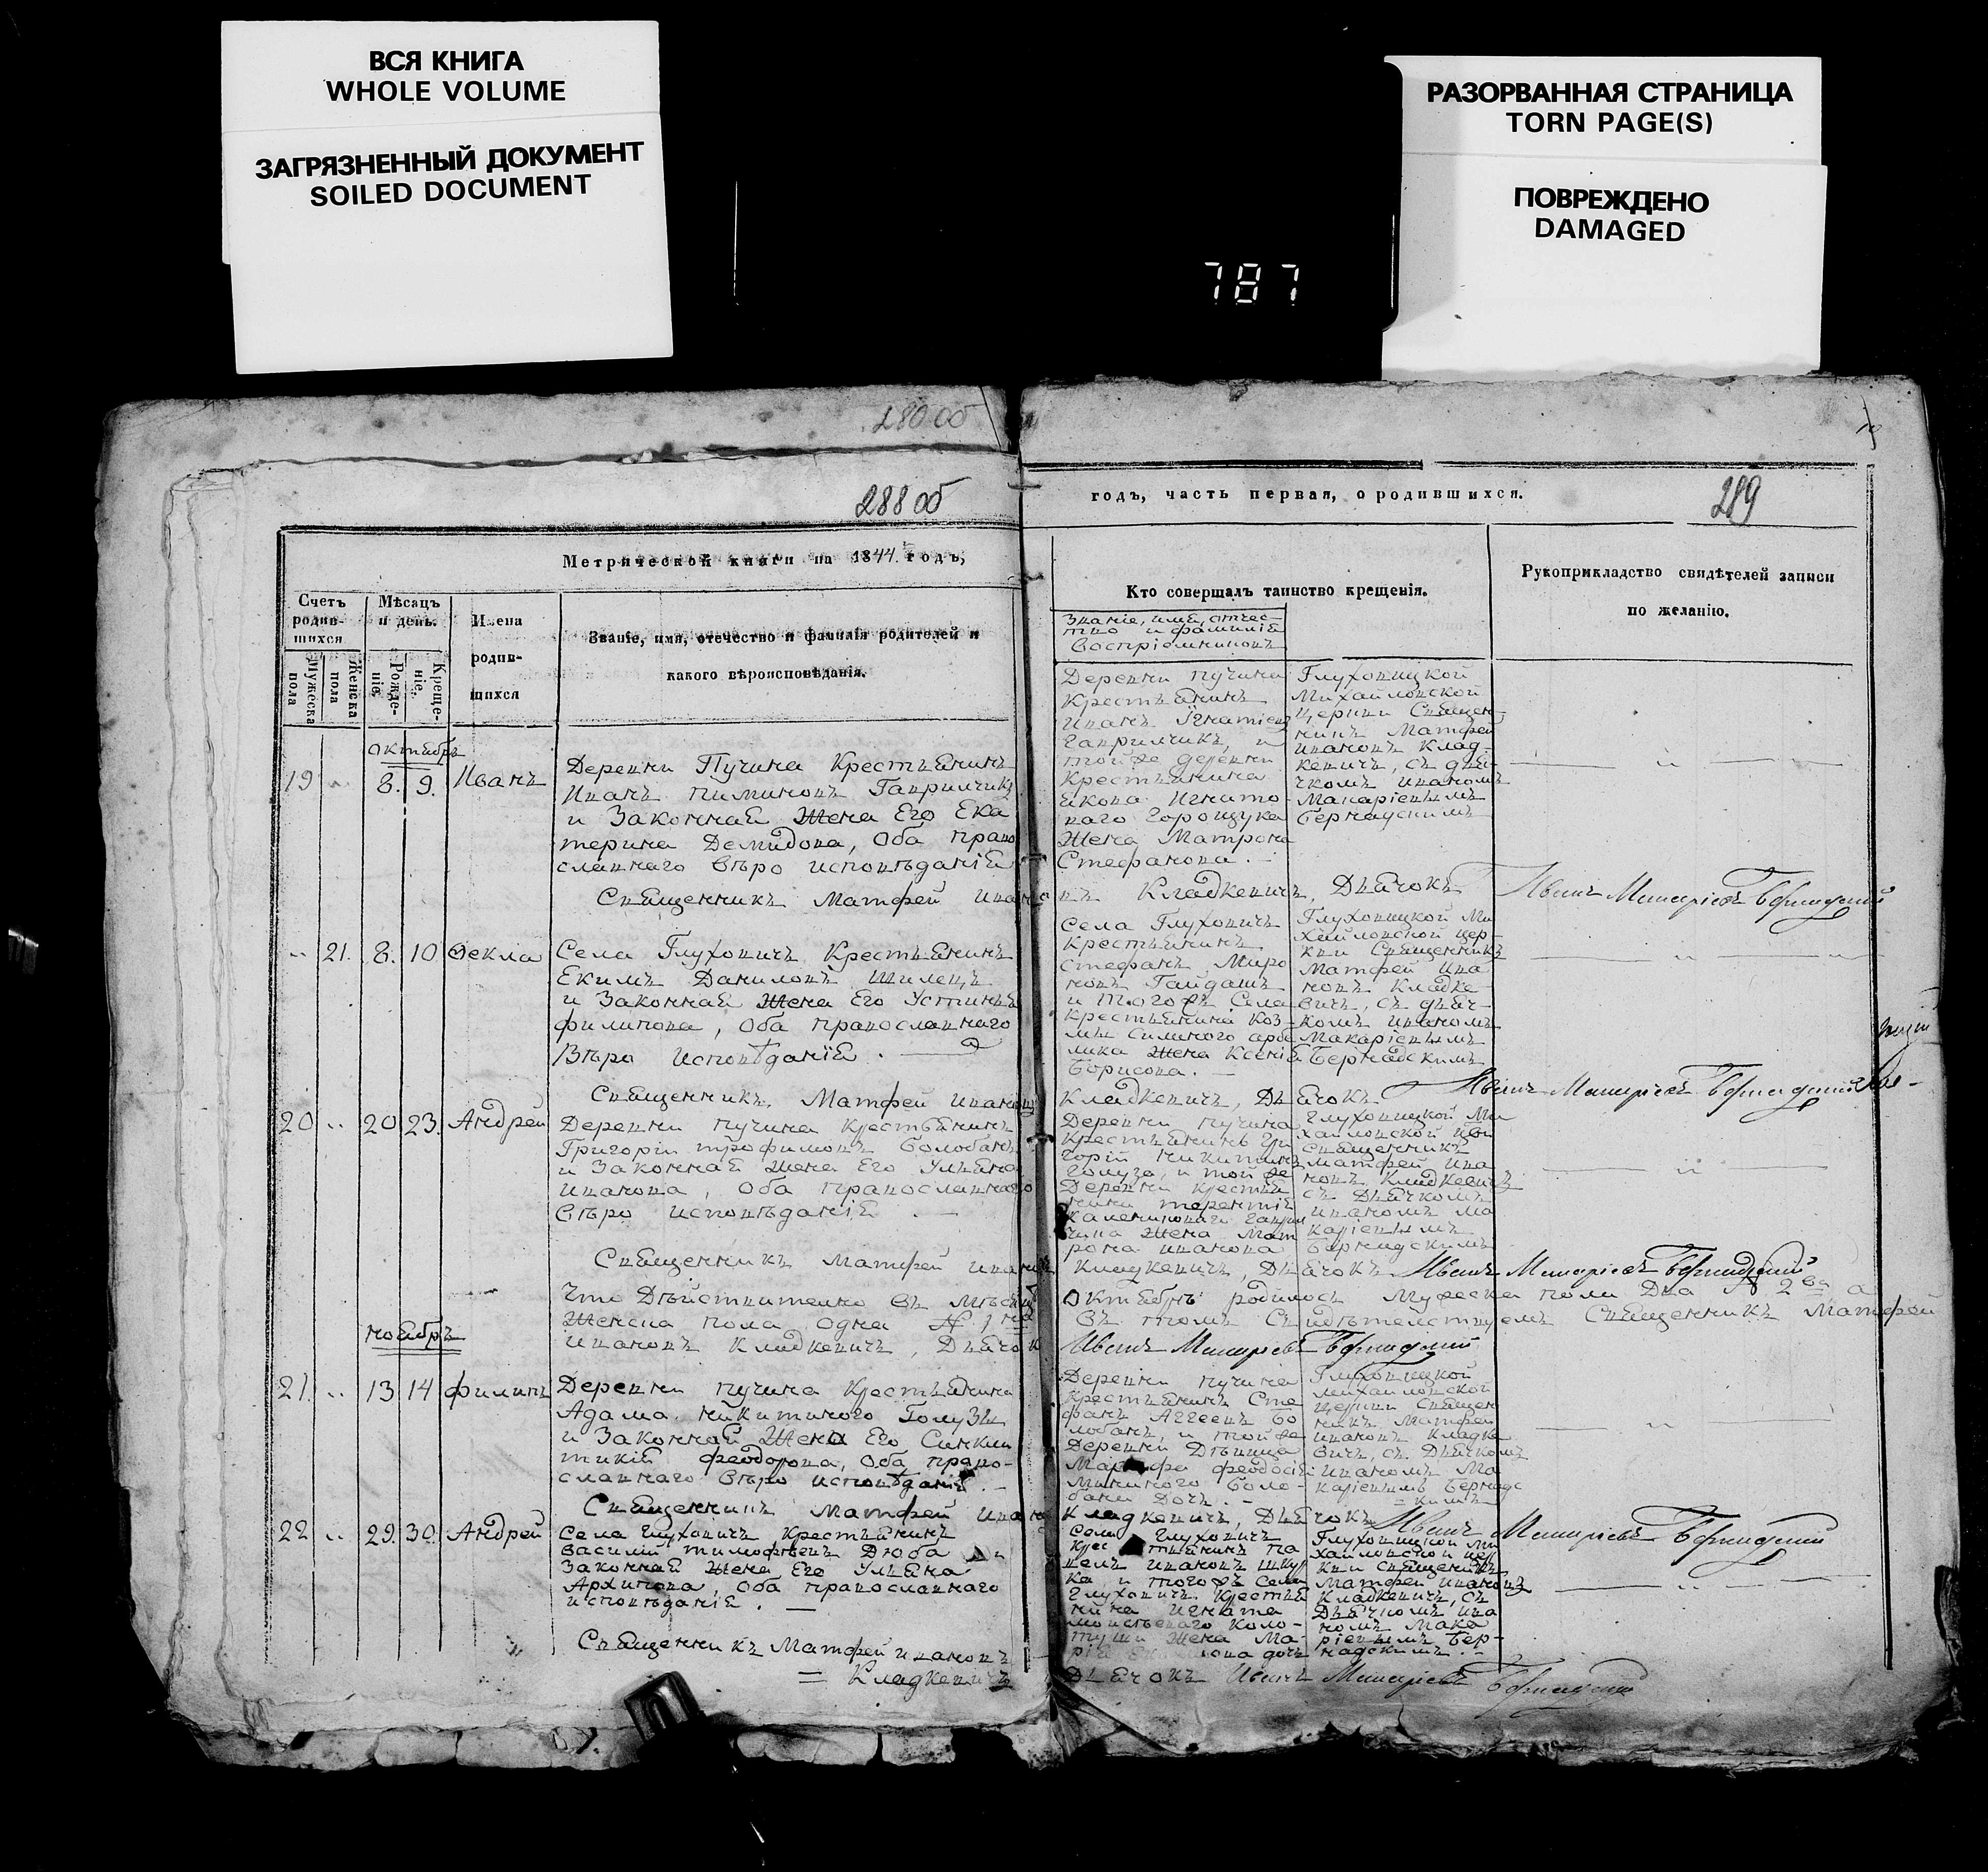 ВСЯ КНИГА
WHOLE VOLUME
ЗАГРЯЗНЕННЫЙ ДОКУМЕНТ
SOILED DOCUMENT
РАЗОРВАННАЯ СТРАНИЦА
TORN PAGE(S)
ПОВРЕЖДЕНО
DAMAGED
787
280 об
288 об
Метрической книги на 1844 годъ,
Счетъ родив-шихся
Мужеска пола
Женска пола
Мѣсяцъ и день.
Рожде-ніе.
Креще-ніе.
Имена
родив-
шихся
Званіе, имя, отечество и фамилія родителей и
какого вѣроисповѣданія.
октябрь
19 8. 9. Иванъ
Деревни Пучина Крестьянинъ
Иванъ Пиминовъ Гаврилчикъ
и Законная Жена Его Ека
терина Демидова, Оба право
славнаго вѣро исповѣданія
Священникъ Матфей Ивано
21. 8. 10 Ѳекла
Села Глуховичъ Крестьянинъ
Екимъ Даниловъ Шилецъ
и Законная Жена Его Устинья
филипова, Оба православнаго
Вѣро Исповѣданія.
Священникъ Матфей Иванов
20 20 23. Андрей
Деревни пучина крестьянинъ
Григорій трофимовъ Болобанъ
и Законная Жена Его Ульяна
Иванова, Оба православнаго
вѣро исповѣданія
Священникъ Матфей Иванов
Что Дѣйствително въ мѣсяцѣ
Женска пола одна № 1на
Ивановъ Кладкевичъ, Дьячок
ноябрь
21. 13 14 филипъ
Деревни пучина крестьянина
Адама никитиного Голузы
и Законной Жена Его Синкли
тикія феодорова, Оба право-
славнаго вѣро исповѣданія.
Священникъ Матфей Ивано
22 29. 30. Андрей
Села Глуховичъ Крестьянинъ
василій тимофѣевъ Дюба и
Законная Жена Его Ульяна
Архипова, Оба православнаго
исповѣданія.
Священникъ Матфей Ивановъ
= Кладкевичъ
годъ, часть первая, о родившихся.
289
Кто совершалъ таинство крещенія.
Рукоприкладство свидѣтелей записи
по желанію.
Званіе, имя, отчес-
тво и фамилія
Воспріемниковъ
Деревни пучина
Крестьянинъ
Иванъ Игнатіев
Гаврилчикъ, и
тойже деревни
Крестьянина
Якова Игнато-
ваго Горощука
Жена Матрона
Стефанова.
Глуховицкой
Михайловской
Церкви Священ-
никъ Матфей
Ивановъ Клад-
кевичъ, съ дья-
чкомъ Иваномъ
Макаріевымъ
Бернадскимъ
въ Кладкевичъ, Дьячокъ
Иванъ Макаріевъ Бернадскій
Села Глуховичъ
крестьянинъ
Стефанъ Миро
новъ Гайдашъ
и тогожъ Села
крестьянина Коз-
мы
лика Жена Ксенія
Борисова.
Глуховицкой Ми
хайловской цер-
кви Священникъ
Матфей Ива
новъ Кладке-
вичъ, съ дьяч-
комъ Иваномъ
Макаріевымъ
Бернадскимъ
Кладкевичъ, Дьячокъ
Иванъ Макаріевъ Бернадскій
Деревни пучина
крестьянинъ Гри
горій никитинъ
Голуза, и тойже
Деревни крестья
нина терентія
Жена Мат
рона Иванова
Глуховицкой Ми
хайловской
Священникъ
матфей Ива
новъ Кладкевичъ
съ Дьячкомъ
Иваномъ Ма
каріевымъ
Бернадскимъ
Кладкевичъ, Дьячокъ Иванъ Макаріевъ Бернадскій
Октябрь родилось Мужеска пола Два № 2ва, а
въ томъ Свидѣтелствуемъ Священникъ Матфей
Иванъ Макаріевъ Бернадскій
Деревни пучина
Крестьянинъ Сте
фанъ Аггеевъ Бо
лобанъ, и тойже
Деревни Дѣвица
феодосія
Боло-
бана Дочь.
Глуховицкой
Михайловской
церкви Священ
никъ Матфей
Ивановъ Кладке
вичъ, съ Дьячкомъ
Иваномъ Ма
каріевымъ Бернадс
=кимъ
Кладкевичъ, Дьячокъ
Иванъ Макаріевъ Бернадскій
Села Глуховичъ
Крестьянинъ Па
велъ Ивановъ
и тогожъ Села
Глуховичъ крестья
нина Игната
Коло-
Жена Ма-
дочь
Глуховицкой Ми
хайловской цер
кви Священникъ
Матфей Ивановъ
Кладкевичъ, съ
Дьячкомъ Ива
номъ Мака
ріевымъ Бер-
надскимъ.
Дьячокъ Иванъ Макаріевъ Бернадскій